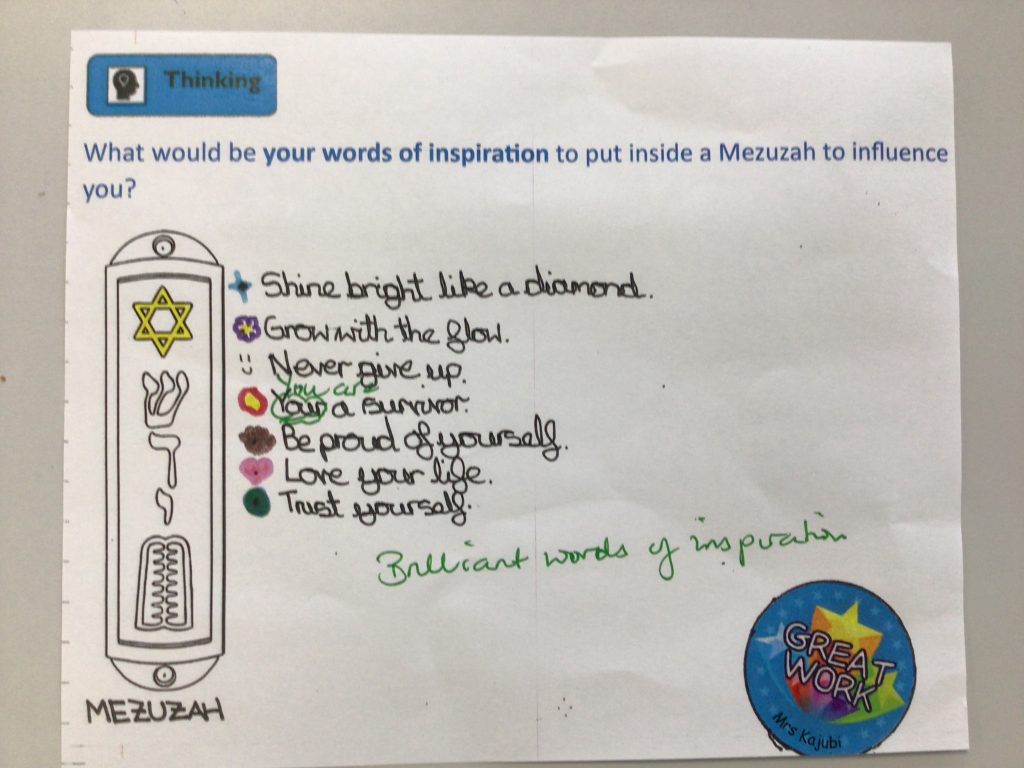 Thinking
What would be your words of inspiration to put inside a Mezuzah to influence
you?
Shine bright like a diamond.
Grow with the glow.
Never give up.
You are
Your a survivor.
Be proud of yourself.
Love your life.
Trust yourself.
Brilliant words of inspiration
שדי
MEZUZAH
GREAT
WORK
Mrs Kajubi